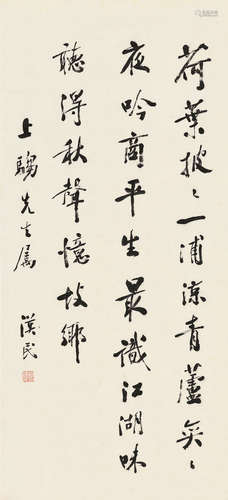 荷葉披披一浦涼青蘆奕奕
夜吟商平生最識江湖味
聽得秋聲憶故鄉
上騶先生属
漢民